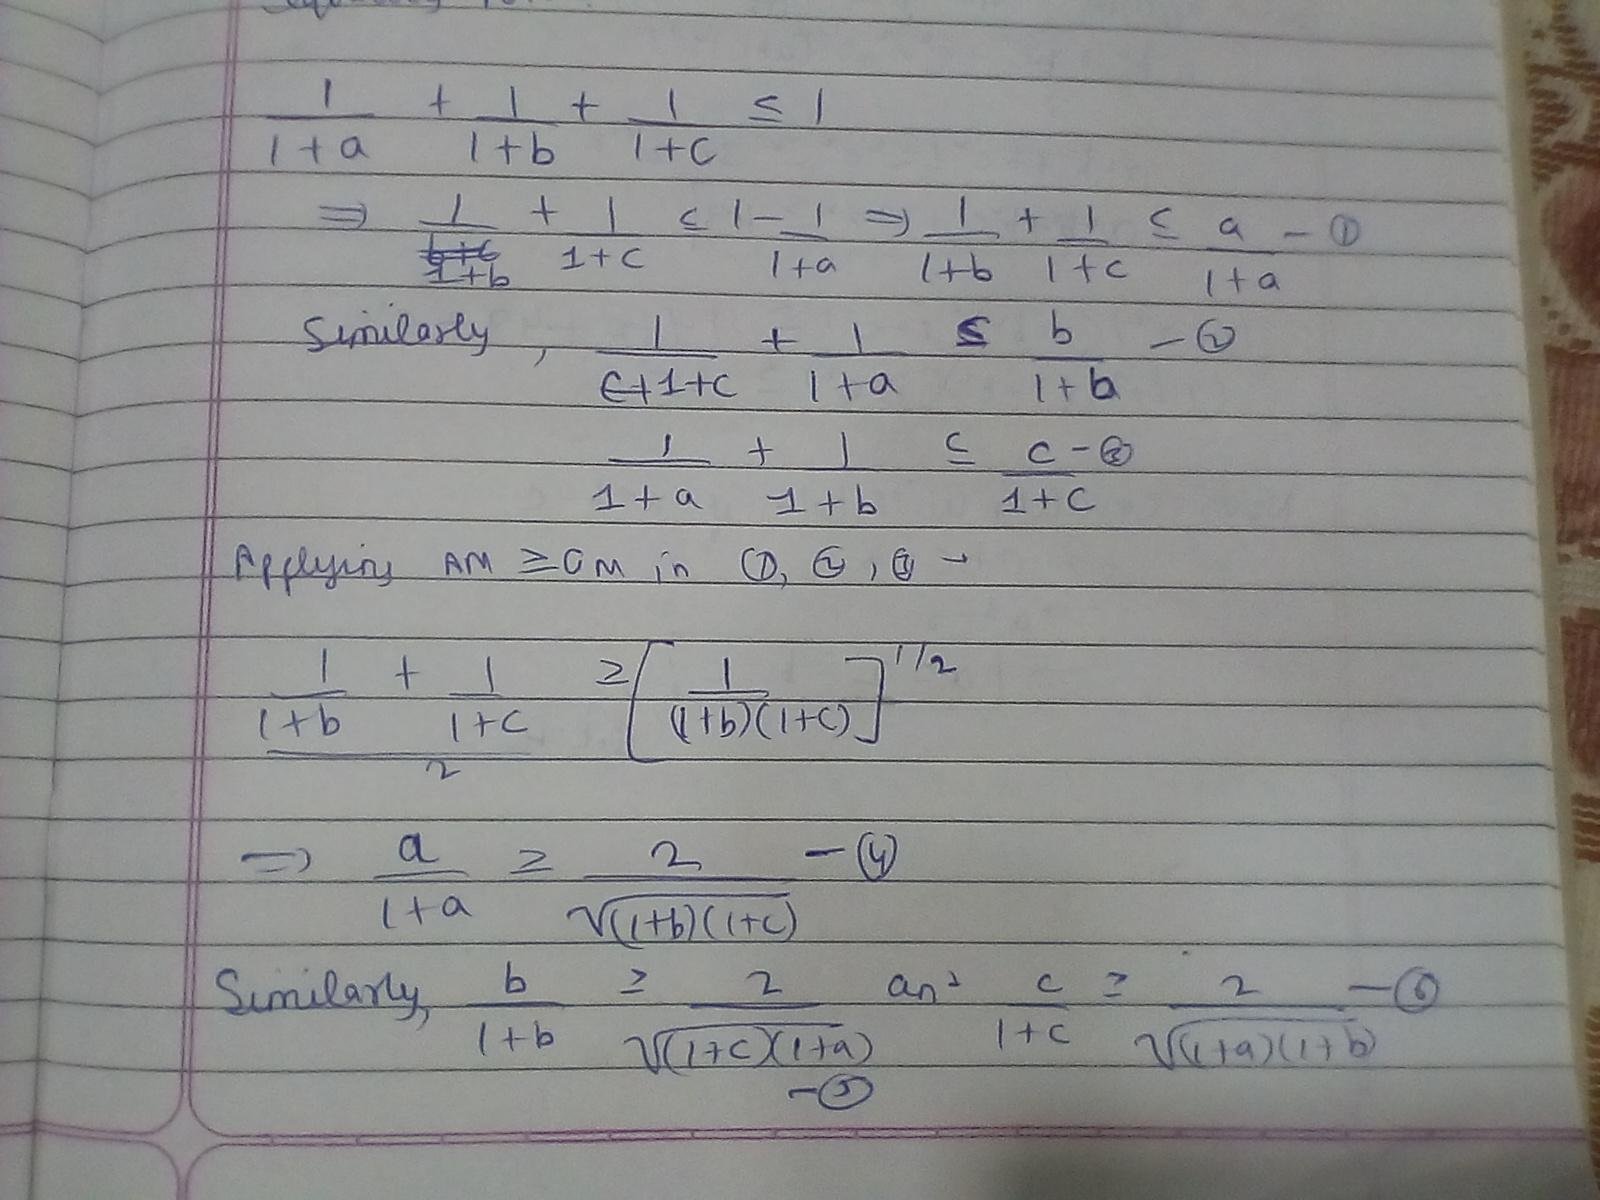 1/(1+a) + 1/(1+b) + 1/(1+c) ≤ 1
⇒ 1/(1+b) + 1/(1+c) ≤ 1 - 1/(1+a) ⇒ 1/(1+b) + 1/(1+c) ≤ a/(1+a) - ①
Similarly, 1/(1+c) + 1/(1+a) ≤ b/(1+b) - ②
1/(1+a) + 1/(1+b) ≤ c/(1+c) - ③
Applying AM ≥ GM in ①, ②, ③ -
(1/(1+b) + 1/(1+c))/2 ≥ [1/((1+b)(1+c))]^1/2
⇒ a/(1+a) ≥ 2/√((1+b)(1+c)) - ④
Similarly, b/(1+b) ≥ 2/√((1+c)(1+a)) - ⑤ and c/(1+c) ≥ 2/√((1+a)(1+b)) - ⑥